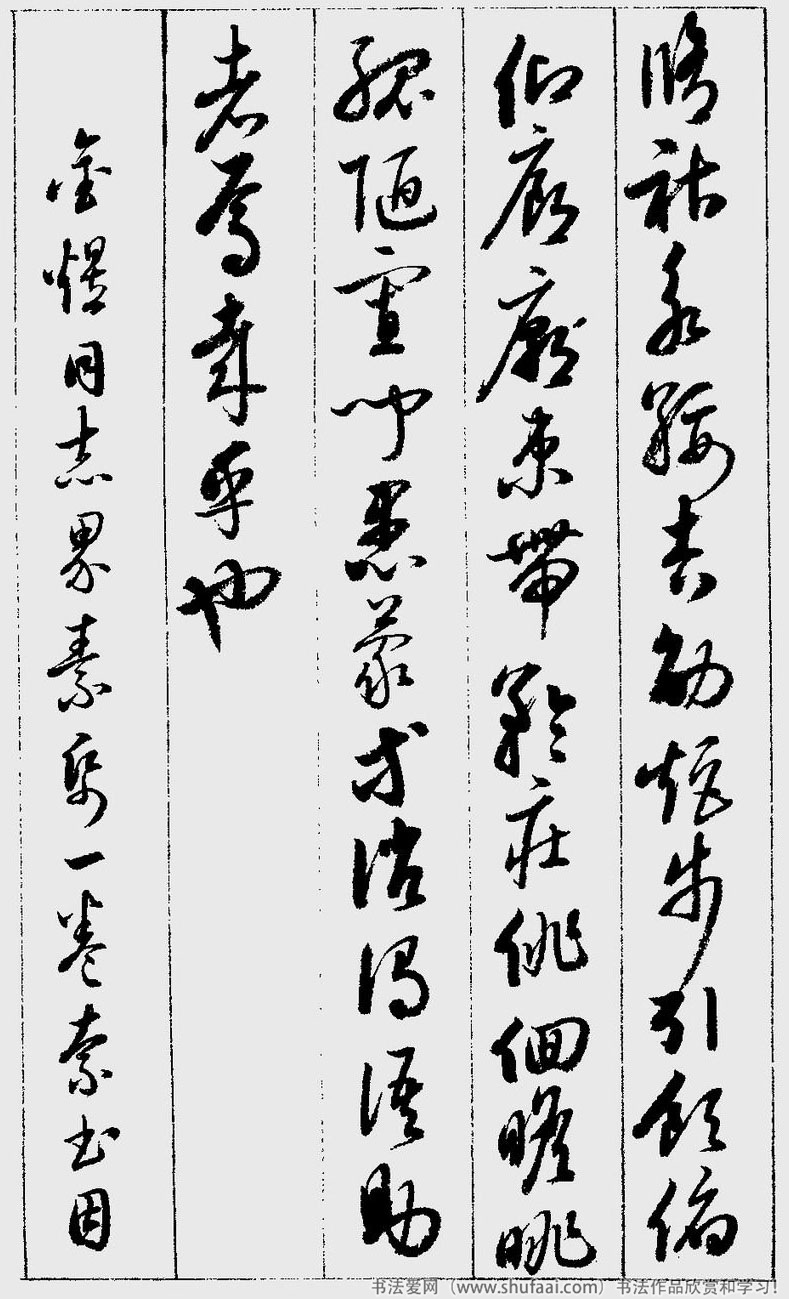 脩祜永綏吉劭矩步引領俯
仰廊廟束帶矜莊徘徊瞻眺
孤陋寡聞愚蒙等誚謂語助
者焉哉乎也
金煜同志界素紙一卷索書因
书法爱网（www.shufaai.com）书法作品欣赏和学习！